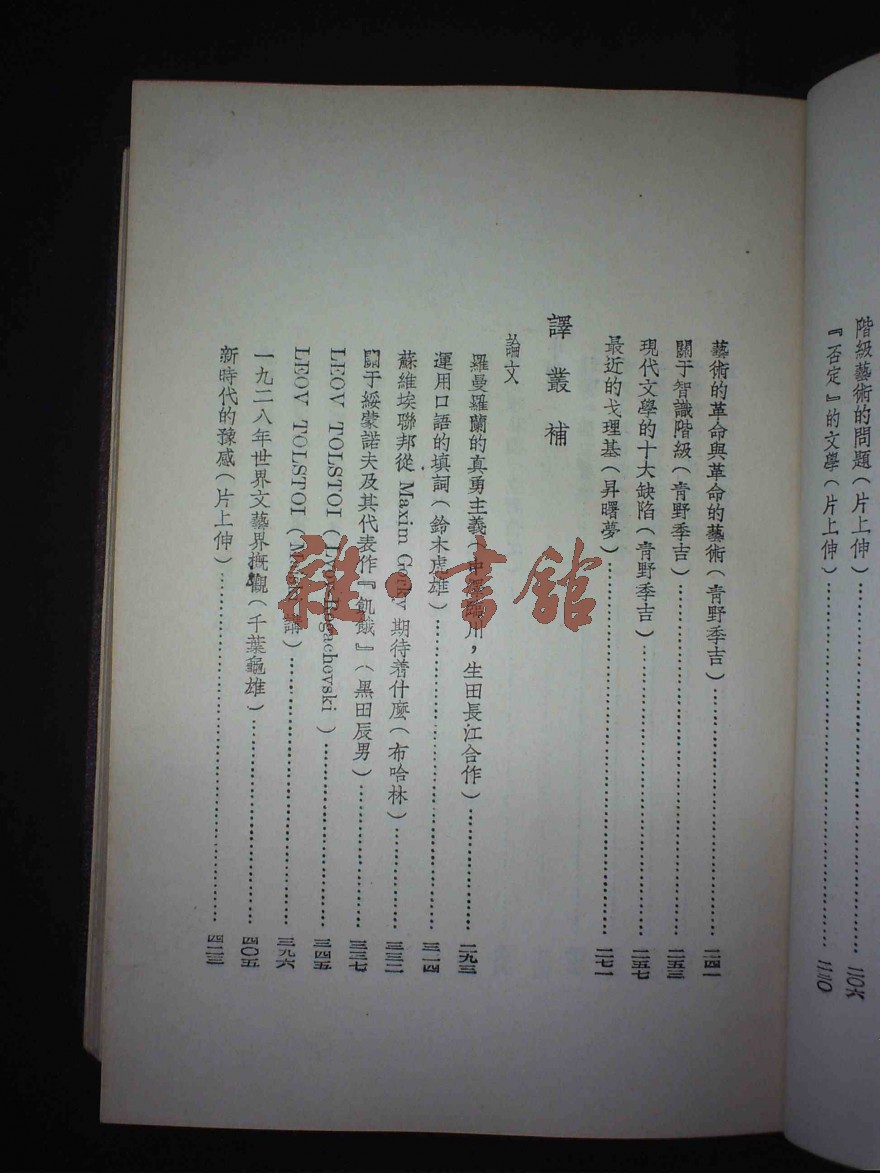 階級藝術的問題(片上伸)……二〇六
『否定』的文學(片上伸)……
藝術的革命與革命的藝術(青野季吉)……二四一
關于智識階級(青野季吉)……二五三
現代文學的十大缺陷(青野季吉)……二五七
最近的戈理基(昇曙夢)……二七一
譯叢補
論文
羅曼羅蘭的真勇主義(中澤臨川,生田長江合作)……二九三
運用口語的填詞(鈴木虎雄)……三一四
蘇維埃聯邦從 Maxim Gorky 期待着什麼(布哈林)……三三二
關于綏蒙諾夫及其代表作『飢餓』(黑田辰男)……三三七
LEOV TOLSTOI(Lvov-Rogachevski)……三四五
LEOV TOLSTOI(Maiski 講)……三九六
一九二八年世界文藝界概觀(千葉龜雄)……四〇五
新時代的豫感(片上伸)……四二三
雜·書館